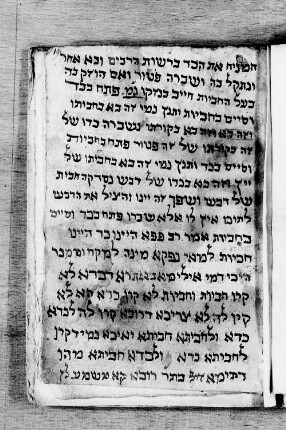 המניח את הכד ברשות הרבים ובא אחר
ונתקל בה ושברה פטור ואם הוזק בה
בעל החבית חייב בנזקו גמ פתח בכד
וסיים בחבית ותנן נמי זה בא בחביתו
וזה בא בקורתו נשברה כדו של
זה בקורתו של זה פטור פתח בחבית
וסיים בכד ותנן נמי זה בא בחביתו של
יין וזה בא בכדו של דבש נסדקה חבית
של דבש ושפך זה יינו והציל את הדבש
לתוכו אין לו אלא שכרו פתח בכד וסיים
בחבית אמר רב פפא היינו כד היינו
חבית למאי נפקא מינה למקח וממכר
היכי דמי אילימא דוכתא דכדא לא
קרו חבית וחבית לא קרו כדא הא לא
קרו לה לא צריכא דרובא קרו לה לכדא
כדא ולחביתא חביתא ואיכא נמי דקרו
לחביתא כדא ולכדא חביתא מהו
דתימא זיל בתר רובא קא משמע לן